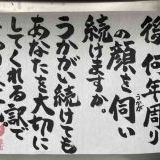 後何年周り
の顔を伺い
続けますか。
うかがい続けても
あなたを大切に
してくれる訳で